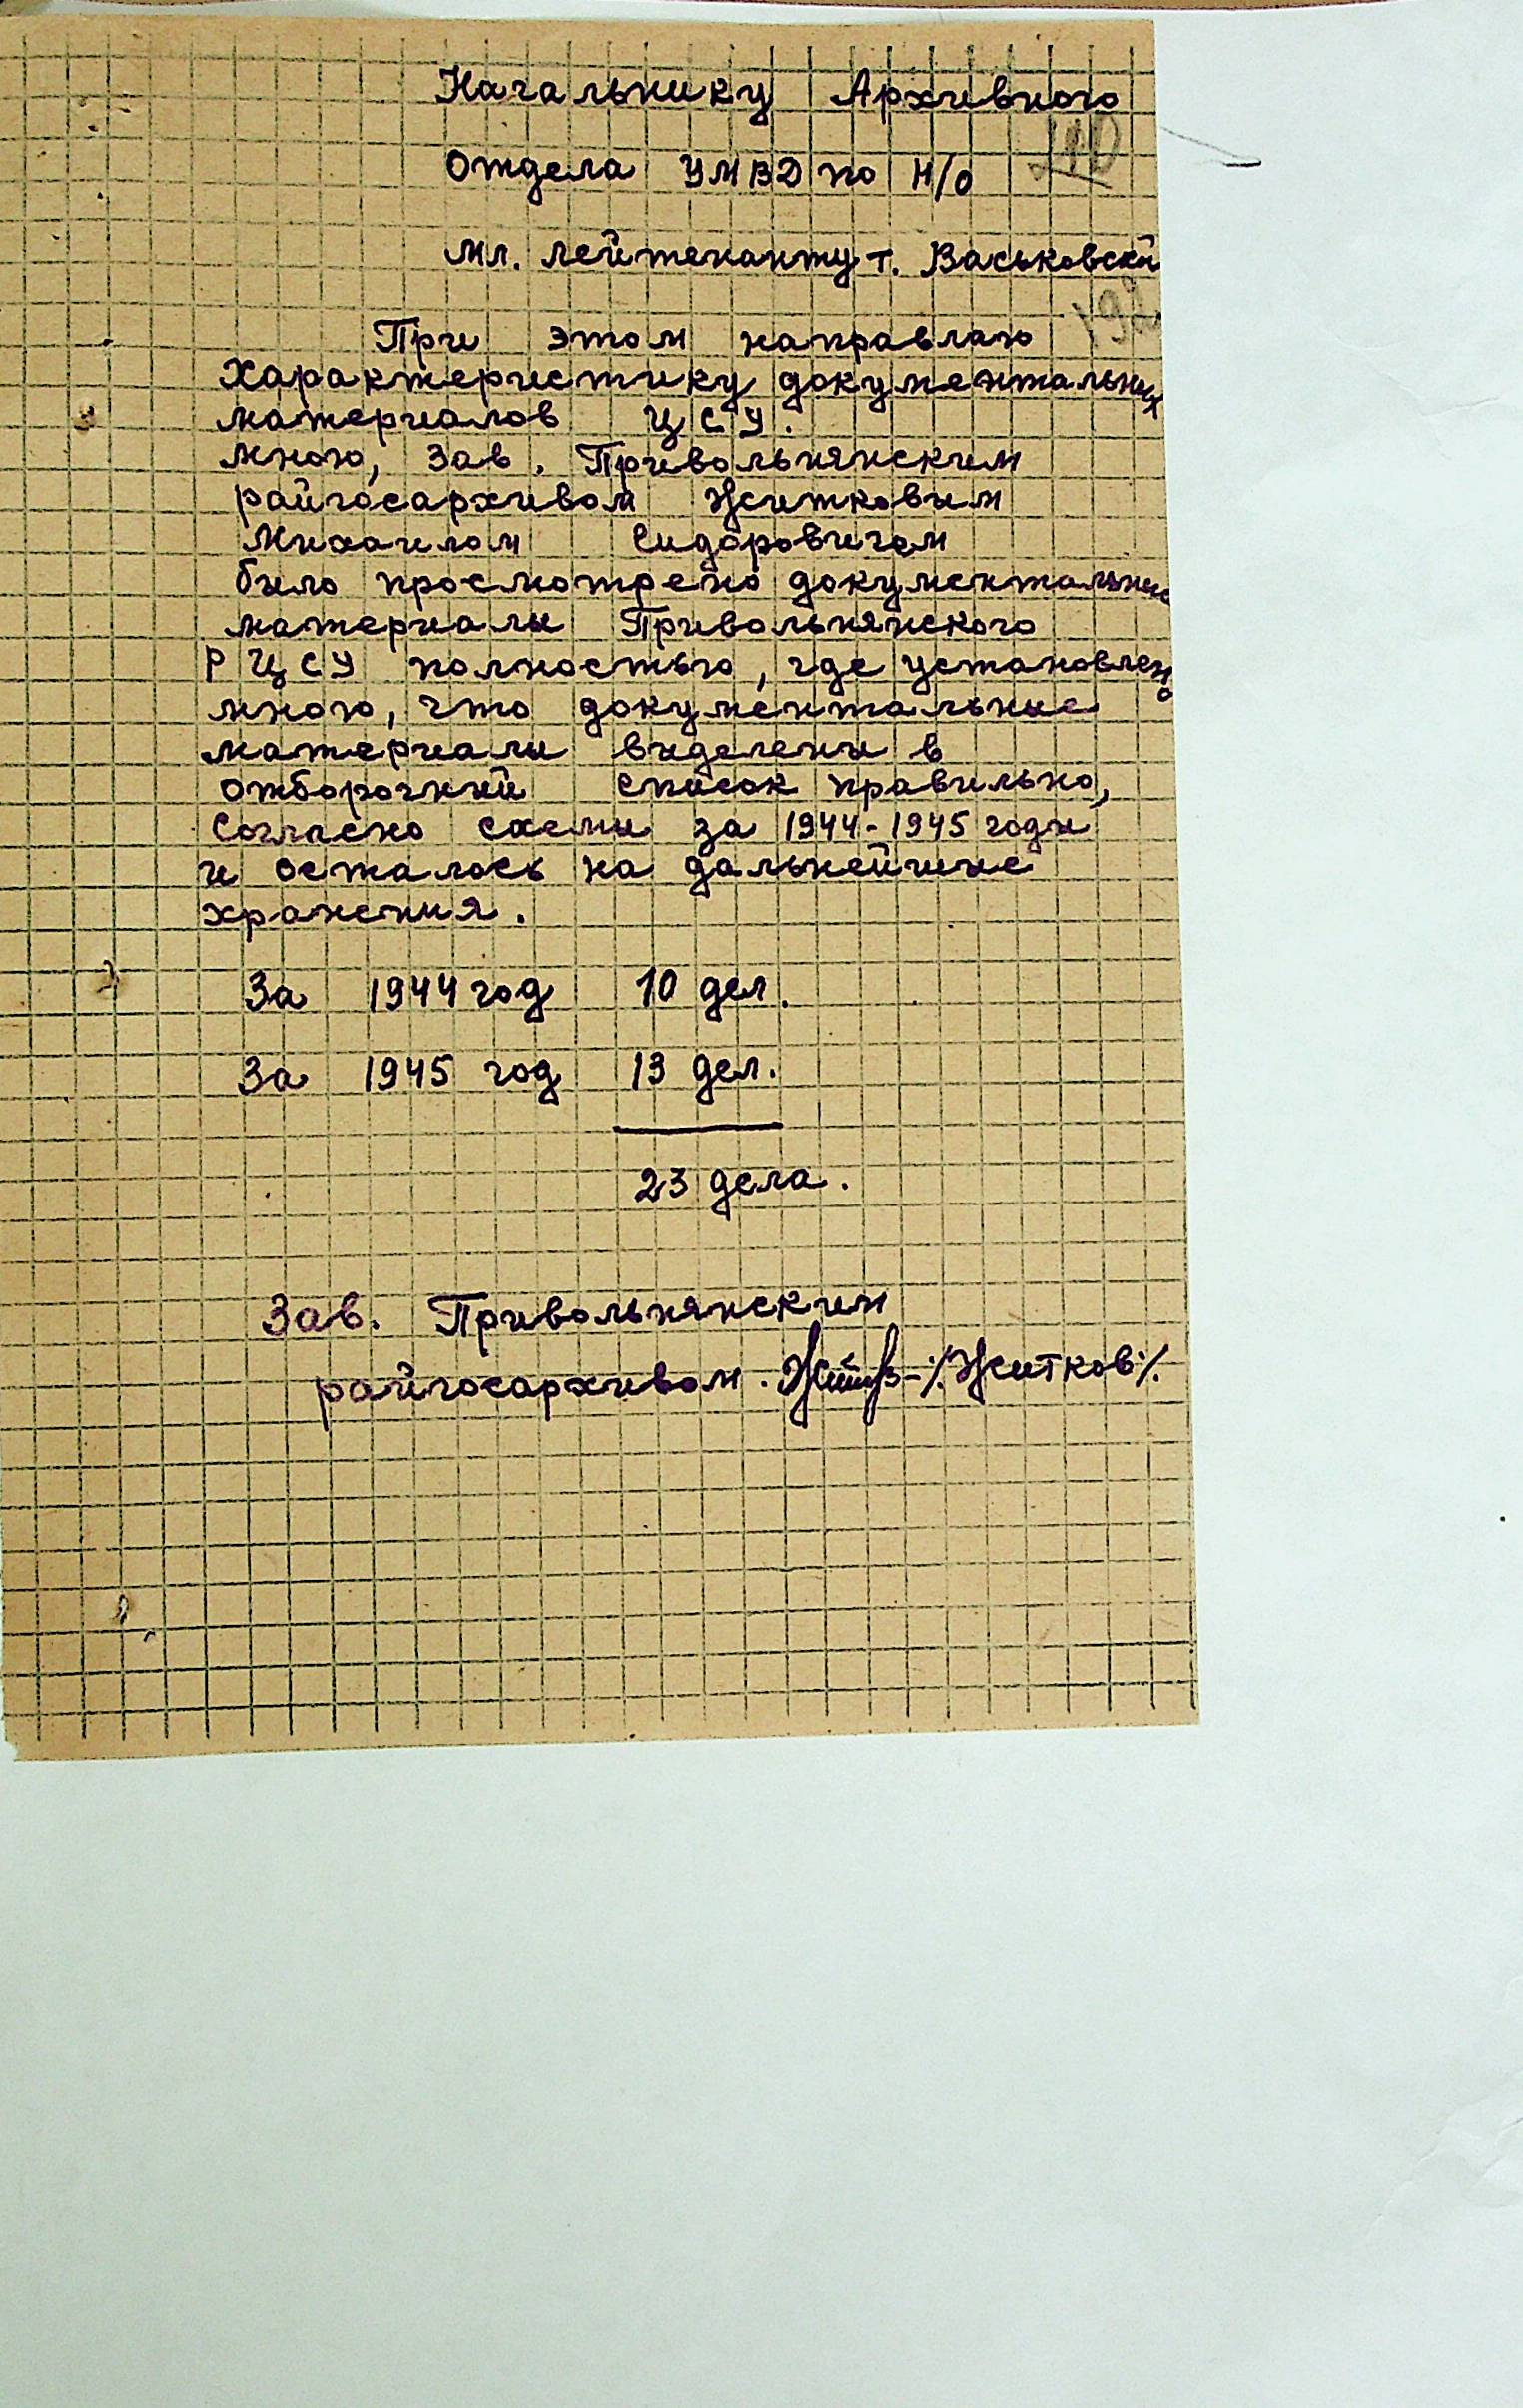 Начальнику Архивного
Отдела УМВД по Н/О
Мл. лейтенанту т. Васьковской
При этом направляю
характеристику документальных
материалов ЦСУ.
мною, Зав. Привольнянским
райгосархивом Житковым
Михаилом Сидоровичем
было просмотрено документальные
материалы Привольнянского
Р ЦСУ полностью, где установлено
мною, что документальные
материалы выделены в
отборочный список правильно,
Согласно схемы за 1944-1945 годы
и осталось на дальнейшие
хранения.
За 1944 год 10 дел.
За 1945 год 13 дел.
23 дела.
Зав. Привольнянским
райгосархивом. /Житков/